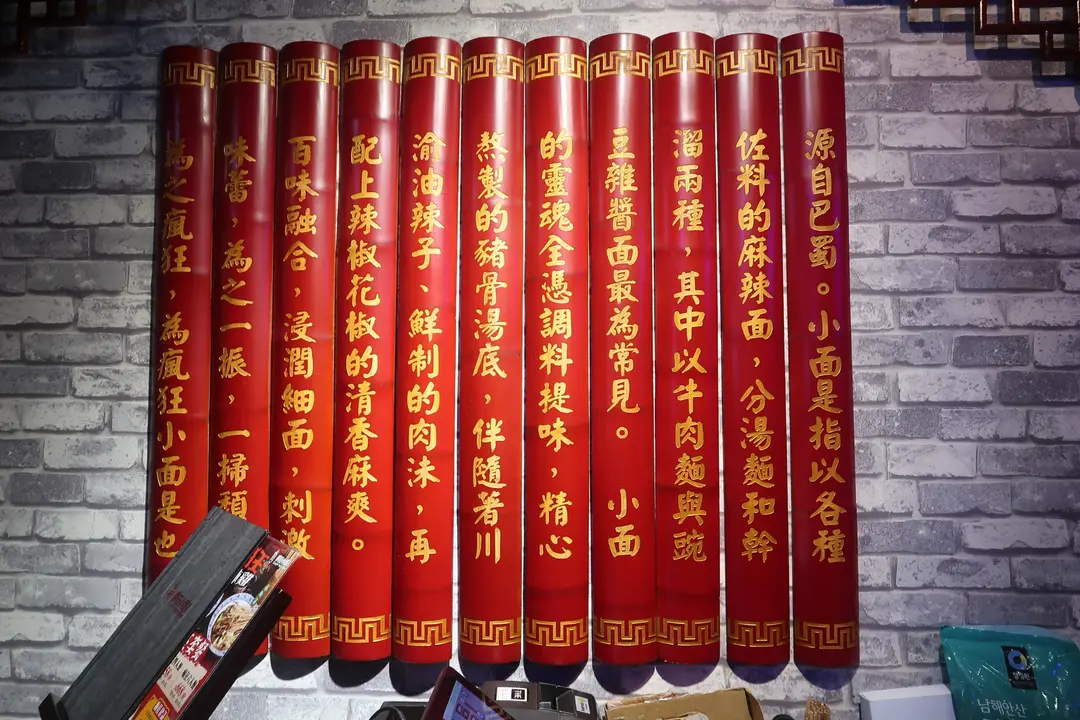 源自巴蜀。小面是指以各種
佐料的麻辣面，分湯麵和幹
溜兩種，其中以牛肉麵與豌
豆雜醬面最為常見。 小面
的靈魂全憑調料提味，精心
熬製的豬骨湯底，伴隨著川
渝油辣子、鮮制的肉沫，再
配上辣椒花椒的清香麻爽。
百味融合，浸潤細面，刺激
味蕾，為之一振，一掃頹
為之瘋狂，為瘋狂小面是也
남해안산